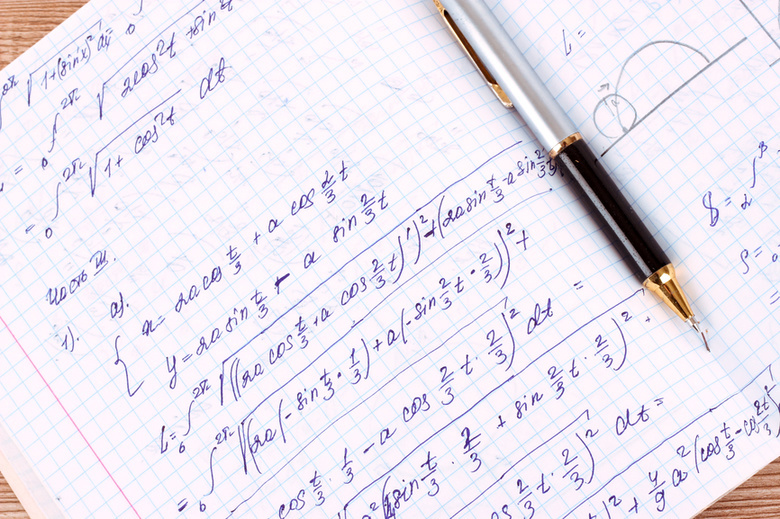 ∫₀^{2π} √(1+(sin'x)²) dx =
= ∫₀^{2π} √(2cos²t + sin²t
= ∫₀^{2π} √(1 + cos²t) dt
Часть III.
1). a).
x = 2a cos t/3 + a cos 2/3 t
y = 2a sin t/3 - a sin 2/3 t
L = ∫₀^{2π} √((2a cos t/3 + a cos 2/3 t)')² + (2a sin t/3 - a sin 2/3 t
= ∫₀^{2π} √(2a(-sin t/3 · 1/3) + a(-sin 2/3 t · 2/3))² +
cos t/3 · 1/3 - a cos 2/3 t · 2/3)² dt =
sin t/3 · 2/3 + sin 2/3 t · 2/3)² +
cos 2/3 t · 2/3)² dt =
)² + 4/9 a² (cos t/3 - cos 2t/3)²
L =
S = ∫
ρ =